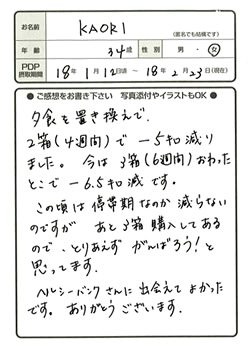 お名前 KAORI (匿名でも結構です)
年齢 34歳 性別 男・女
PDP摂取期間 18年1月12日頃〜18年2月23日(現在)
● ご感想をお書き下さい 写真添付やイラストもOK ●
夕食を置き換えで、
2箱(4週間)で −5キロ減り
ました。今は3箱(6週間)おわった
とこで −6.5キロ減です。
この頃は停滞期なのか減らない
のですが あと3箱購入してある
ので、とりあえず がんばろう!と
思ってます。
ヘルシーバンクさんに出会えてよかった
です。ありがとうございます。